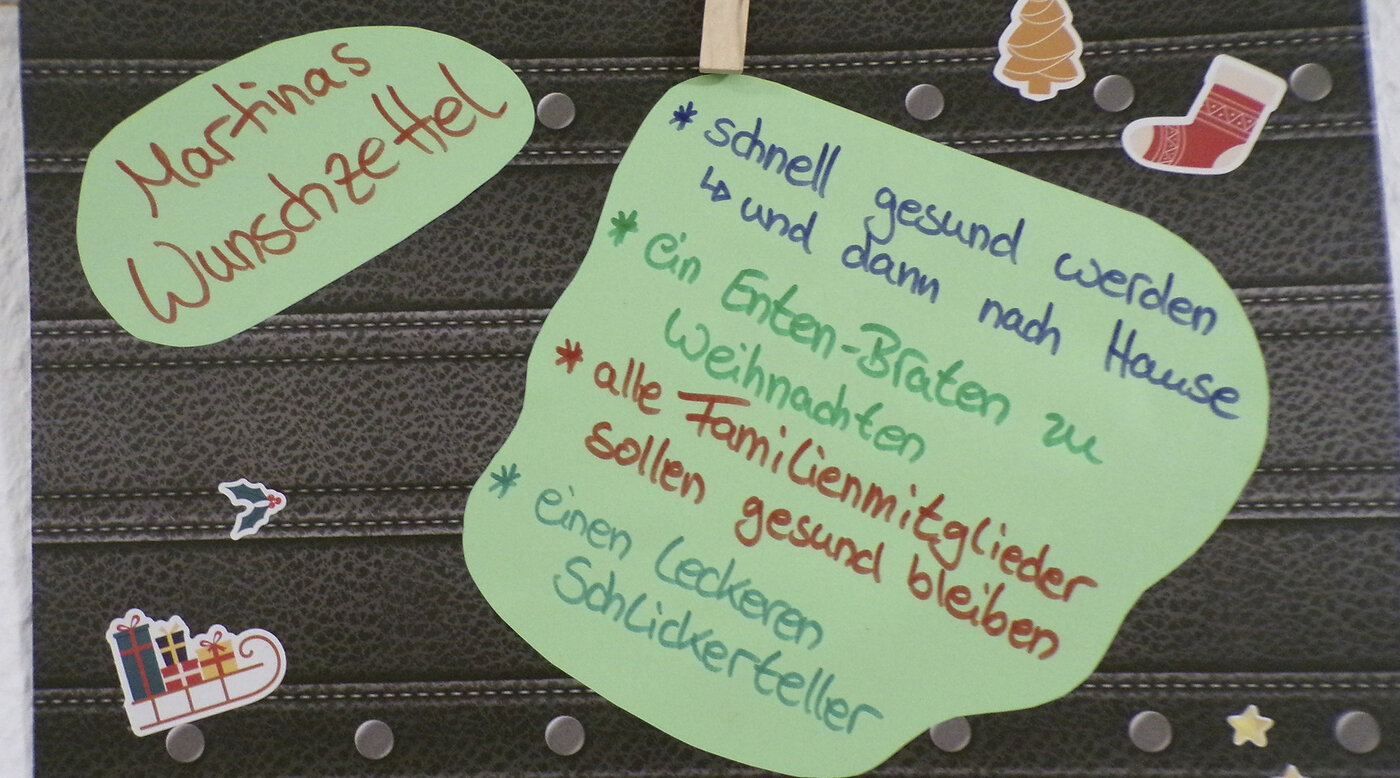 Martinas
Wunschzettel
* schnell gesund werden
↳ und dann nach Hause
* ein Enten-Braten zu
Weihnachten
* alle Familienmitglieder
sollen gesund bleiben
* einen leckeren
Schlickerteller